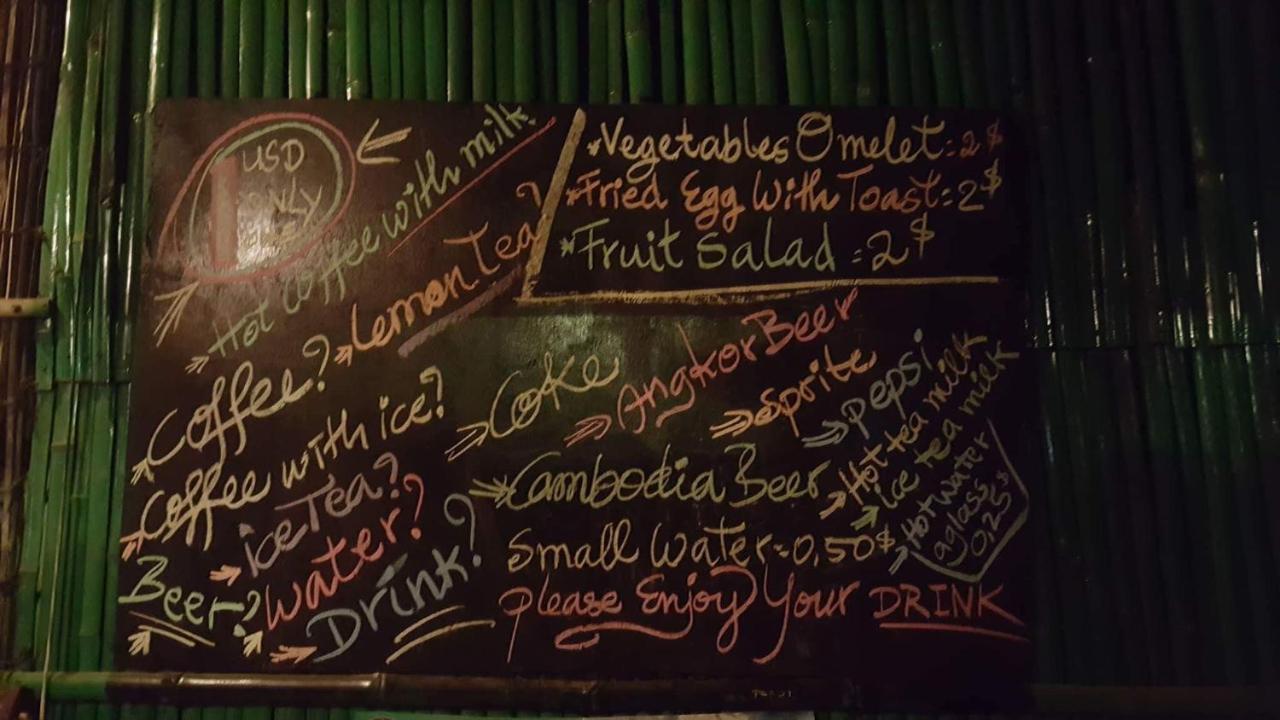 1 USD
Only
Hot Coffee with milk?
Lemon Tea?
Coffee?
Coffee with ice?
ice Tea?
Beer?
Water?
Drink?
*Vegetables Omelet=2$
*Fried Egg With Toast=2$
*Fruit Salad=2$
Coke
Angkor Beer
Sprite
Pepsi
Cambodia Beer
Hot tea milk
ice tea milk
Hot water
aglass
0,25$
Small Water=0,50$
please Enjoy Your DRINK